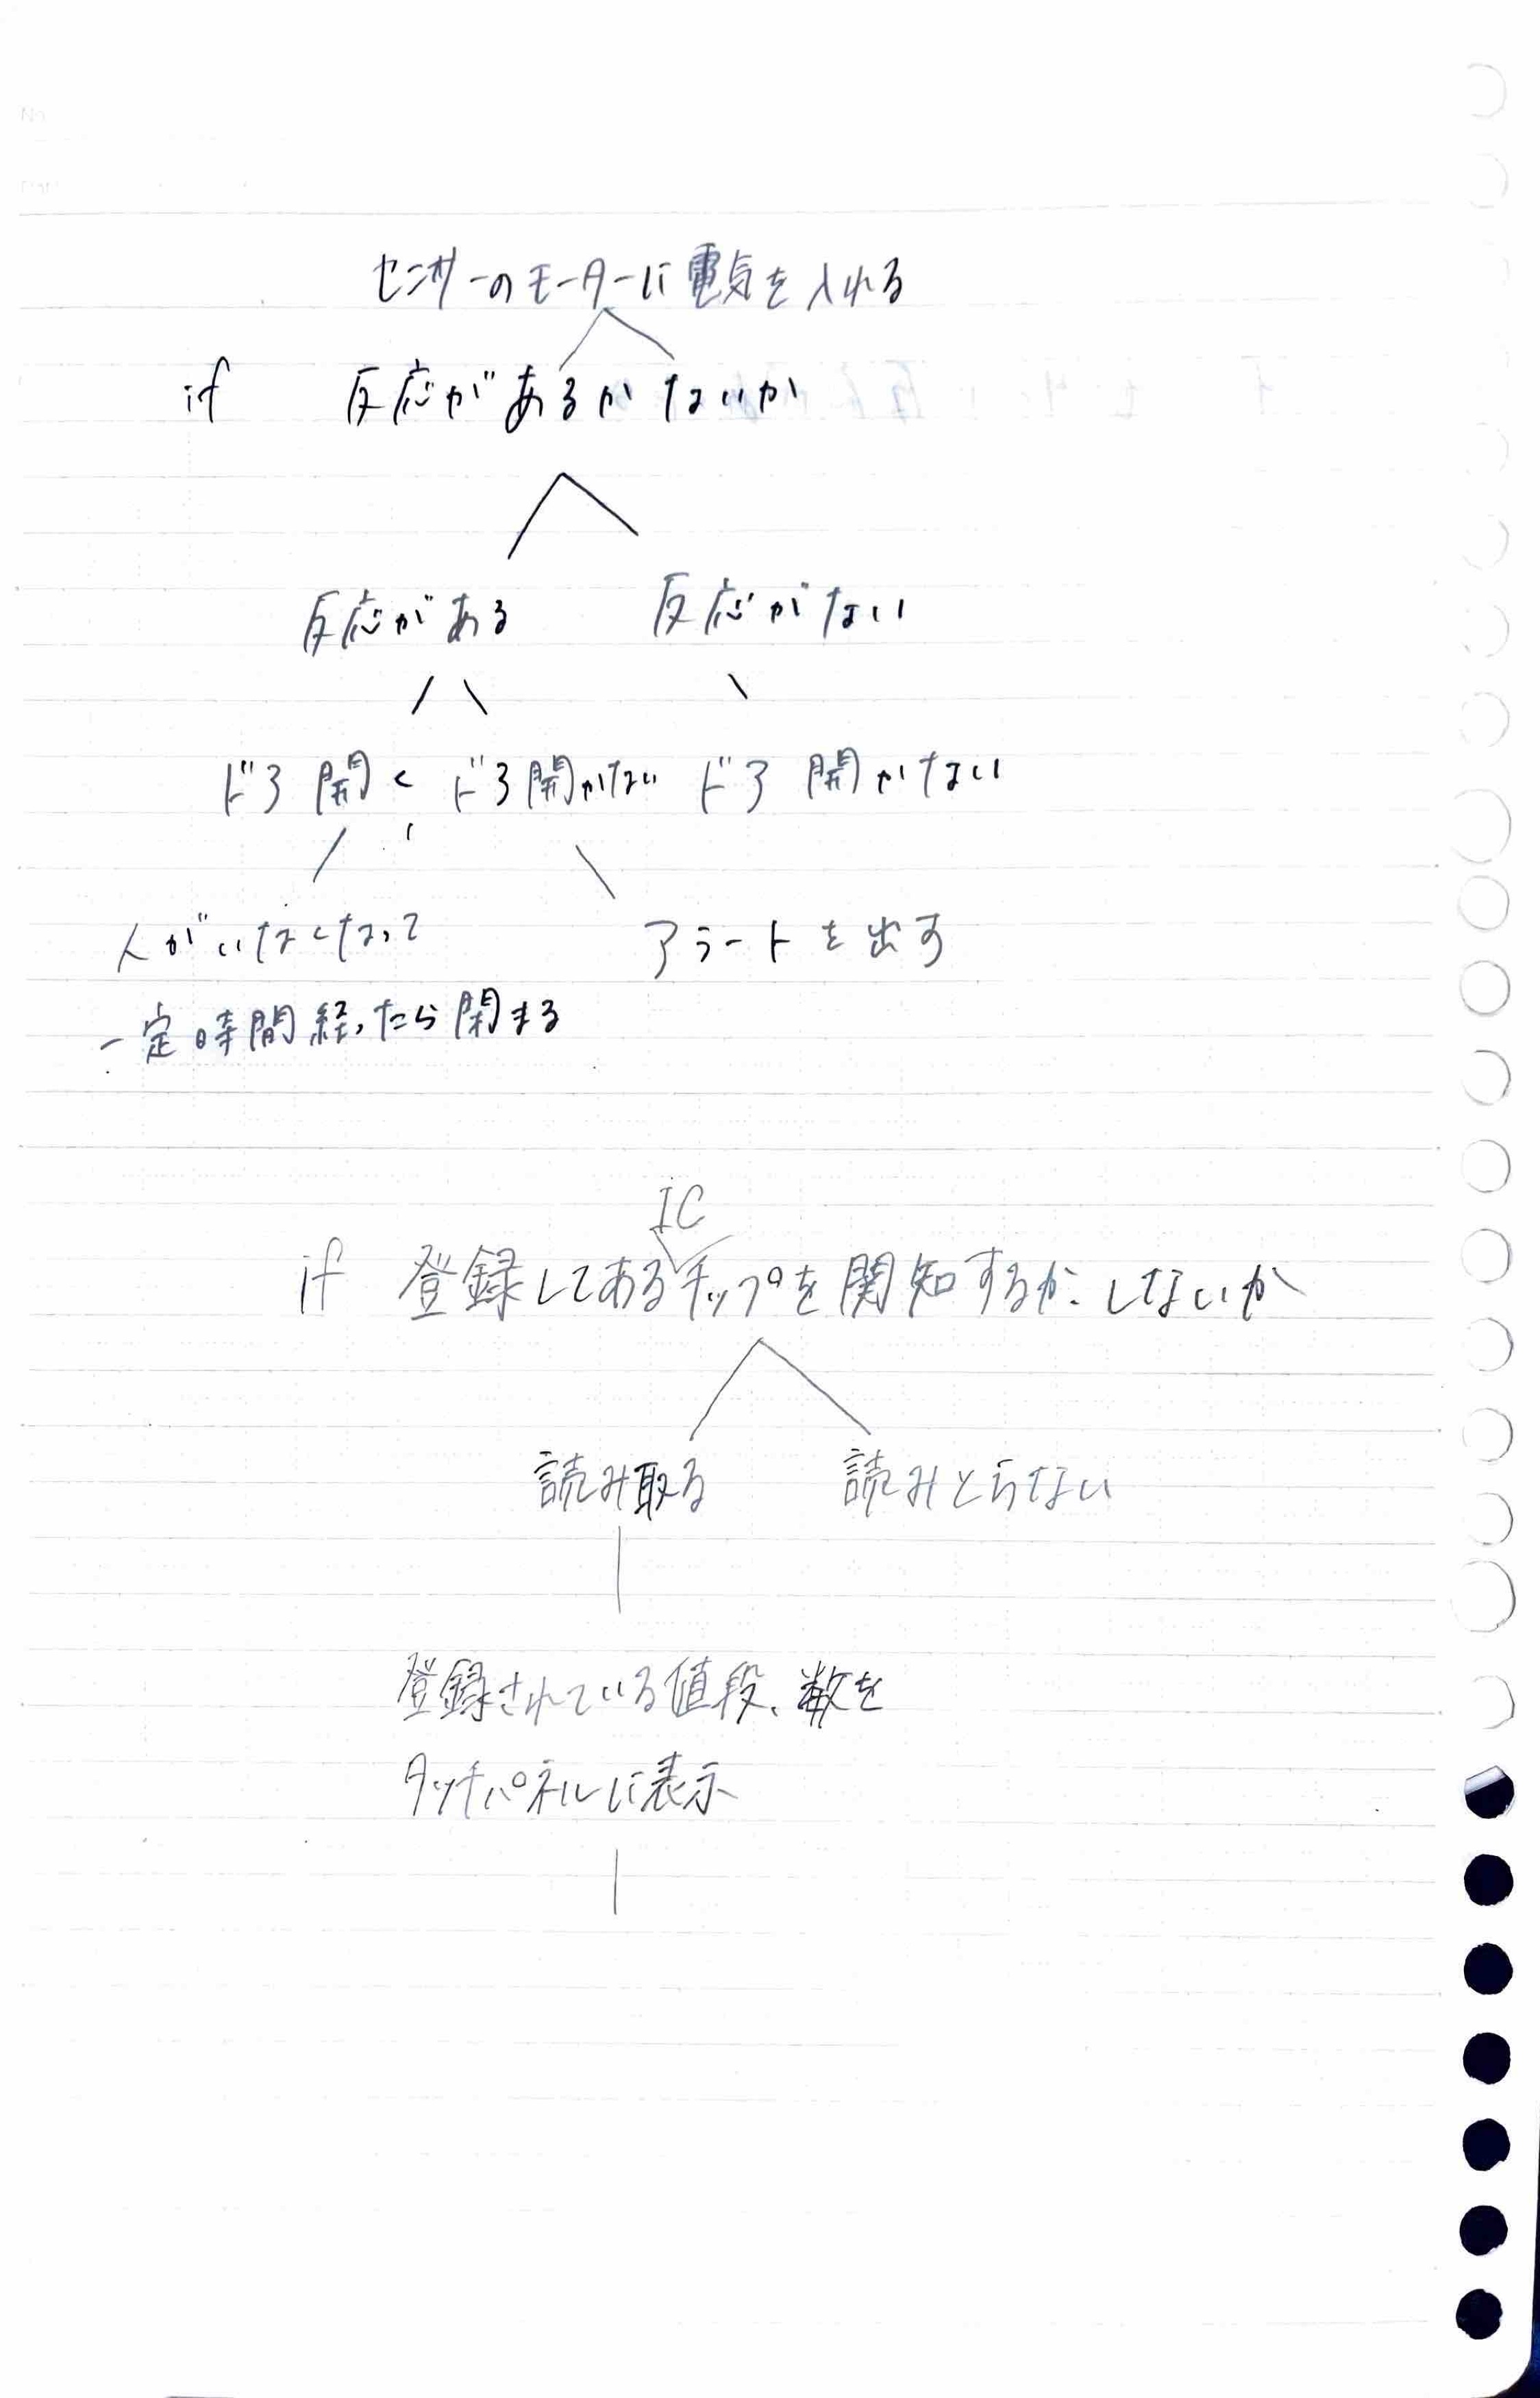 センサーのモーターに電気を入れる
if 反応があるかないか
反応がある 反応がない
ドア開く ドア開かない ドア開かない
人がいなくなって アラートを出す
一定時間経ったら閉まる
IC
if 登録してあるチップを関知するか、しないか
読み取る 読みとらない
登録されている値段、数を
タッチパネルに表示